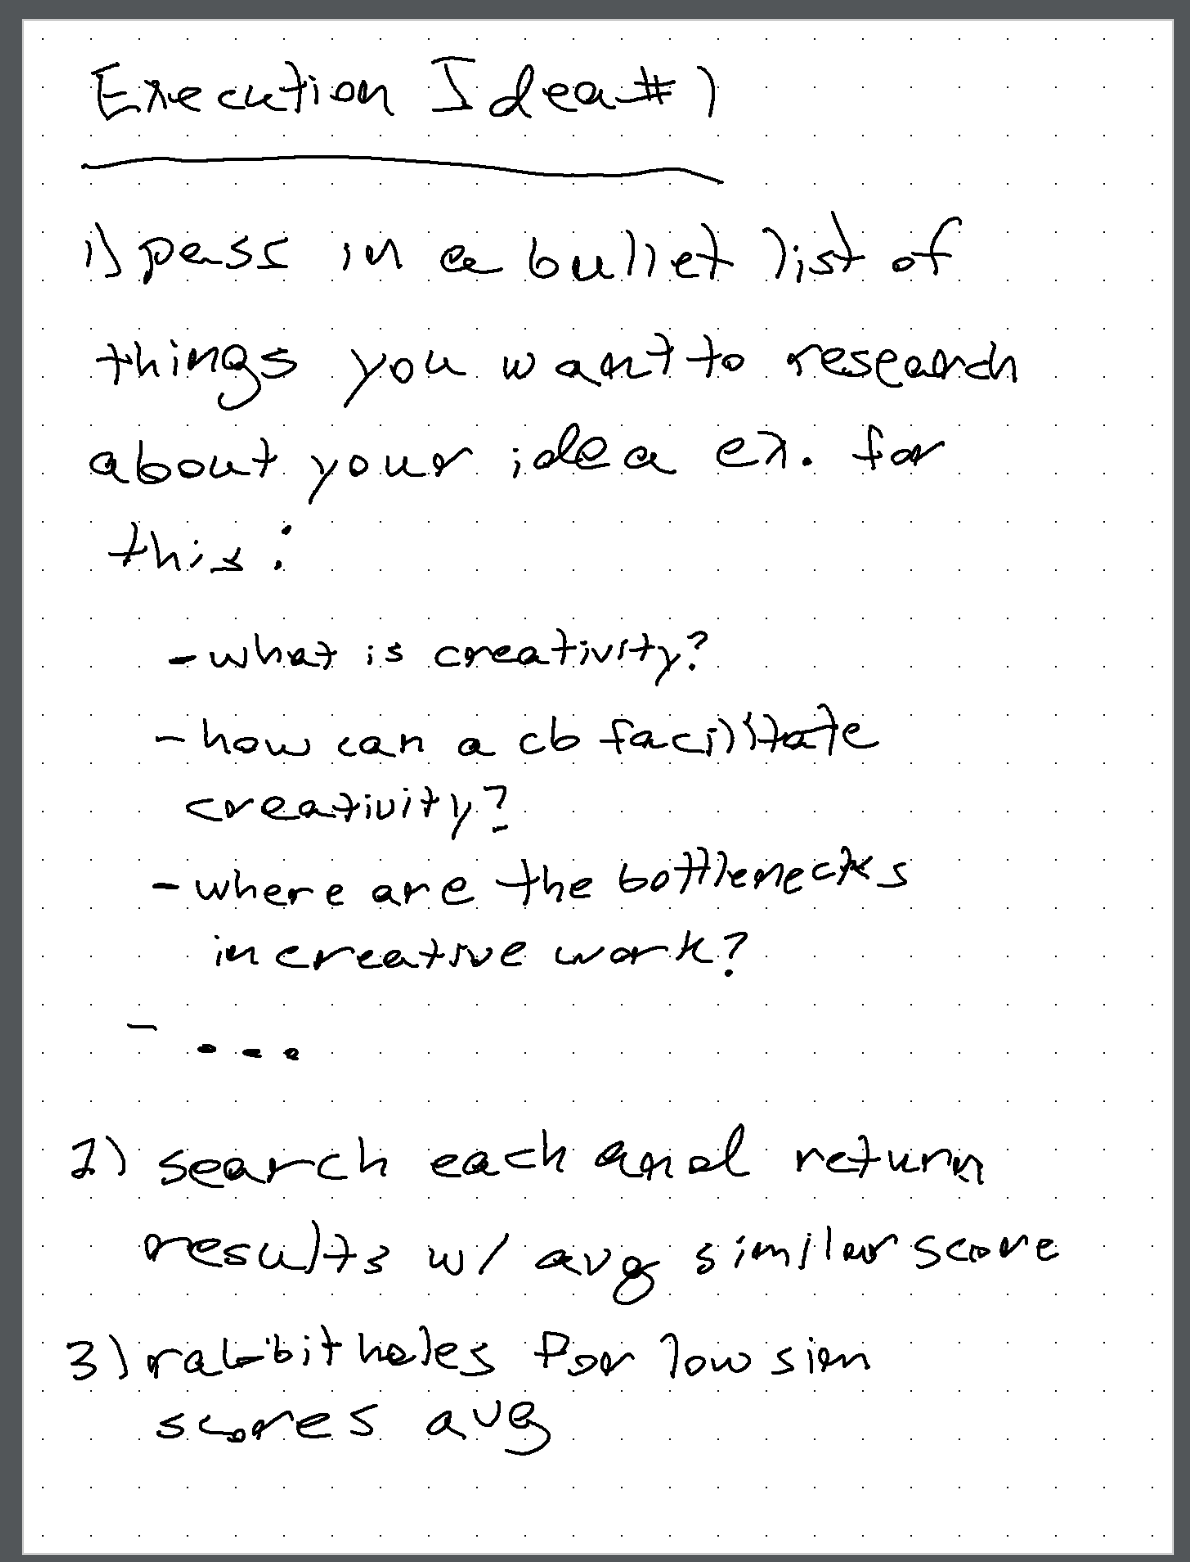 Execution Idea #1
1) pass in a bullet list of
things you want to research
about your idea ex. for
this:
- what is creativity?
- how can a cb facilitate
creativity?
- where are the bottlenecks
in creative work?
- ...
2) search each and return
results w/ avg similar score
3) rabbit holes for low sim
scores avg